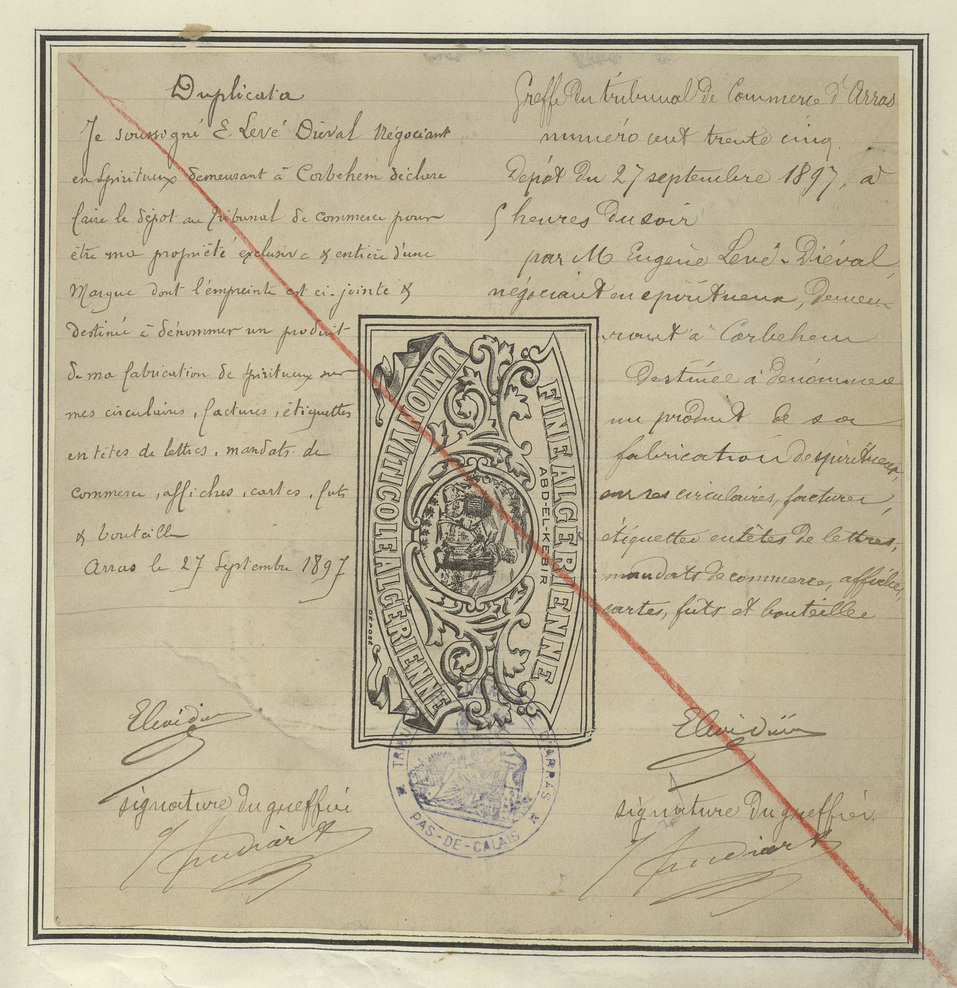 Duplicata
Je soussigné E Levé Diéval Négociant
en Spiritueux demeurant à Corbehem déclare
faire le dépôt au Tribunal de commerce pour
être ma propriété exclusive & entière d'une
Marque dont l'empreinte est ci-jointe &
destiné à dénommer un produit
de ma fabrication de spiritueux sur
mes circulaires, factures, étiquettes
entêtes de lettres, mandats de
commerce, affiches, cartes, futs
& bouteille
Arras le 27 Septembre 1897
signature du greffier
Greffe du tribunal de Commerce d'Arras
numéro cent trente cinq
Dépôt du 27 septembre 1897, à
5 heures du soir
par M Eugène Levé-Diéval,
négociant en spiritueux, demeu
rant à Corbehem
Destinée à dénommer
un produit de sa
fabrication de spiritueux,
sur ses circulaires, factures,
étiquettes entêtes de lettres,
mandats de commerce, affiches,
cartes, futs et bouteilles
signature du greffier.
UNION VITICOLE ALGÉRIENNE
FINE ALGÉRIENNE
ABD-EL-KEBIR
DÉPOSÉ
D'ARRAS
PAS-DE-CALAIS